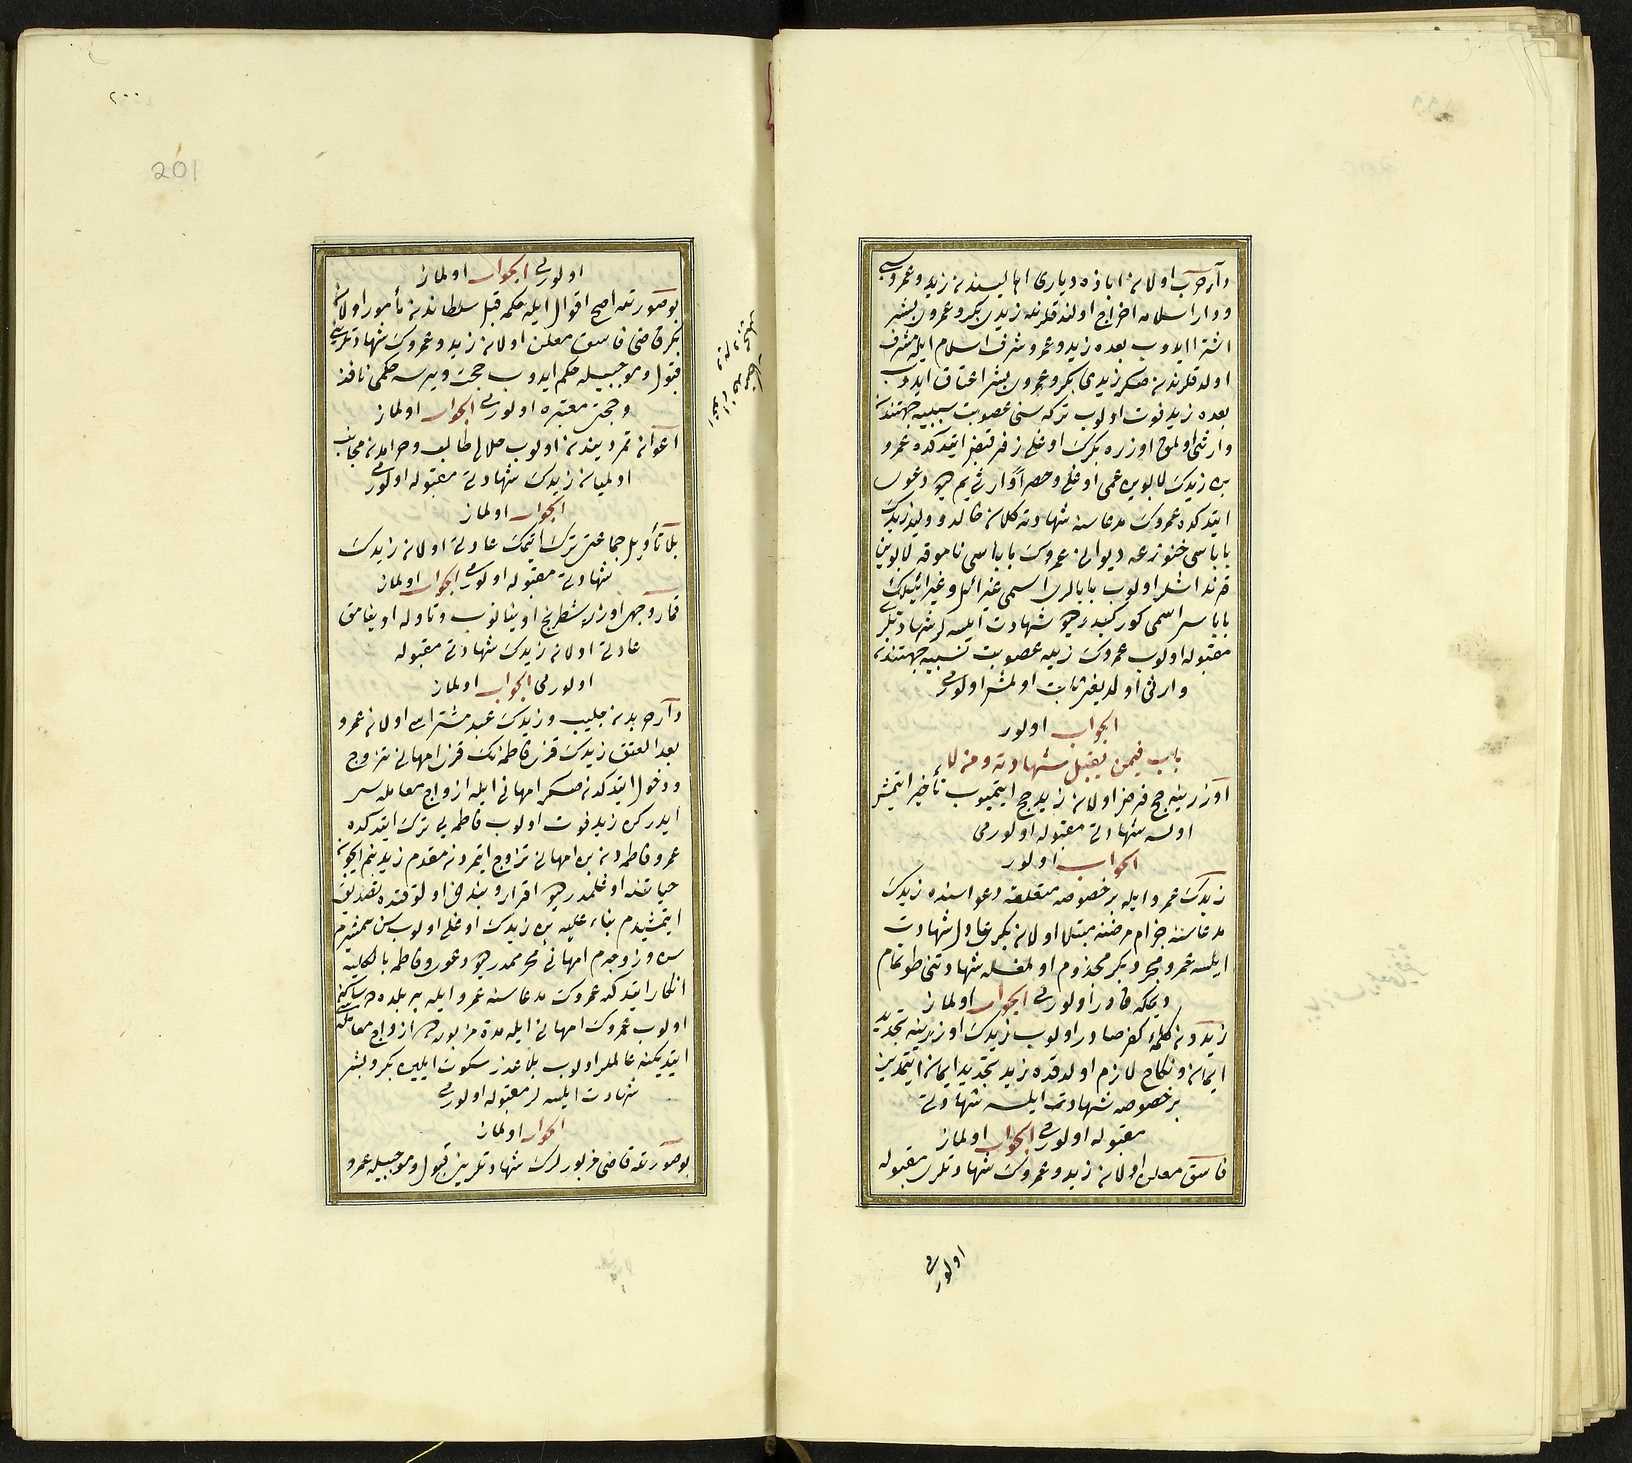 دار حرب اولان اباذه دیاری اهالیسندن زید و عمرو سبی
و دار اسلامه اخراج اولندقلرنده زیدی بکر و عمروی بشر
اشترا ایدوب بعده زید و عمرو شرف اسلام ایله مشرف
اولدقلرندن صکره زیدی بکر و عمروی بشر اعتاق ایدوب
بعده زید فوت اولوب ترکه سنی عصوبت سببیه جهتندن
وارثی اولمق اوزره بکرک اوغلی زفر قبض ایتدکده عمرو
بن زیدک لابوین عمی اوغلی و حصرا وارثی یم دیو دعوی
ایتدکده عمروک مدعاسنه شهادته کلان خالد و ولید زیدک
باباسی عمروک باباسی لابوین
قرنداشلر اولوب بابالری اسمی
باباسی اسمی دیو شهادت ایلسه لر شهادتلری
مقبوله اولوب عمروک زیده عصوبت نسبیه جهتندن
وارثی اولدیغی ثابت اولمش اولورمی
الجواب اولور
باب فیمن یقبل شهادته و من لا
اوزرینه حج فرض اولان زید حج ایتمیوب تأخیر ایتمش
اولسه شهادتی مقبوله اولورمی
الجواب اولور
زیدک عمرو ایله بر خصوصه متعلقه دعواسنده زیدک
مدعاسنه جذام مرضنه مبتلا اولان بکر عادل شهادت
ایلسه عمرو مجرد بکر مجذوم اولمغله شهادتنی طوتمام
دیمکه قادر اولورمی الجواب اولماز
زیددن کلمۀ کفر صادر اولوب زیدک اوزرینه تجدید
ایمان و نکاح لازم اولدقده زید تجدید ایمان ایتمدین
بر خصوصه شهادت ایلسه شهادتی
مقبوله اولورمی الجواب اولماز
فاسق معلن اولان زید و عمروک شهادتلری مقبوله
اولورمی
٢٠٠
201
اولورمی الجواب اولماز
بو صورتده اصح اقوال ایله حکمه قبل سلطاندن مأمور اولان
بکر قاضی فاسق معلن اولان زید و عمروک شهادتلرینی
قبول و موجبیله حکم ایدوب حجت ویرسه حکمی نافذ
و حجتی معتبره اولورمی الجواب اولماز
اعوان تمردیندن اولوب حلالی طالب و حرامدن مجانب
اولمیان زیدک شهادتی مقبوله اولورمی
الجواب اولماز
بلا تأویل جماعتی ترک ایتمک عادتی اولان زیدک
شهادتی مقبوله اولورمی الجواب اولماز
قمار وجهی اوزره شطرنج اوینایوب و تاوله اوینامق
عادتی اولان زیدک شهادتی مقبوله
اولورمی الجواب اولماز
دار حربدن جلیب و زیدک عبد مشتراسی اولان عمرو
بعد العتق زیدک قزی فاطمه نک قزی امهانی تزوج
و دخول ایتدکدن صکره امهانی ایله ازواج معامله سی
ایدرکن زید فوت اولوب فاطمه یی ترک ایتدکده
عمرو فاطمه دن بن امهانی تزوج ایتمزدن مقدم زید بنم ایچون
حیاتنده اوغلمدر دیو اقرار و بن دخی اولوقتده تصدیق
ایتمشیدم بناء علیه بن زیدک اوغلی اولوب سن همشیره م
سن و زوجه م امهانی محرممدر دیو دعوی و فاطمه بالکلیه
انکار ایتدکده عمروک مدعاسنه عمرو ایله بر بلده ده ساکنلر
اولوب عمروک امهانی ایله مدت مزبوره ده ازواج معامله سی
ایتدیکنه عالملر اولوب بلا عذر سکوت ایلین بکر و بشر
شهادت ایلسه لر مقبوله اولورمی
الجواب اولماز
بو صورتده قاضی مزبورلرک شهادتلرینی قبول و موجبیله عمرو